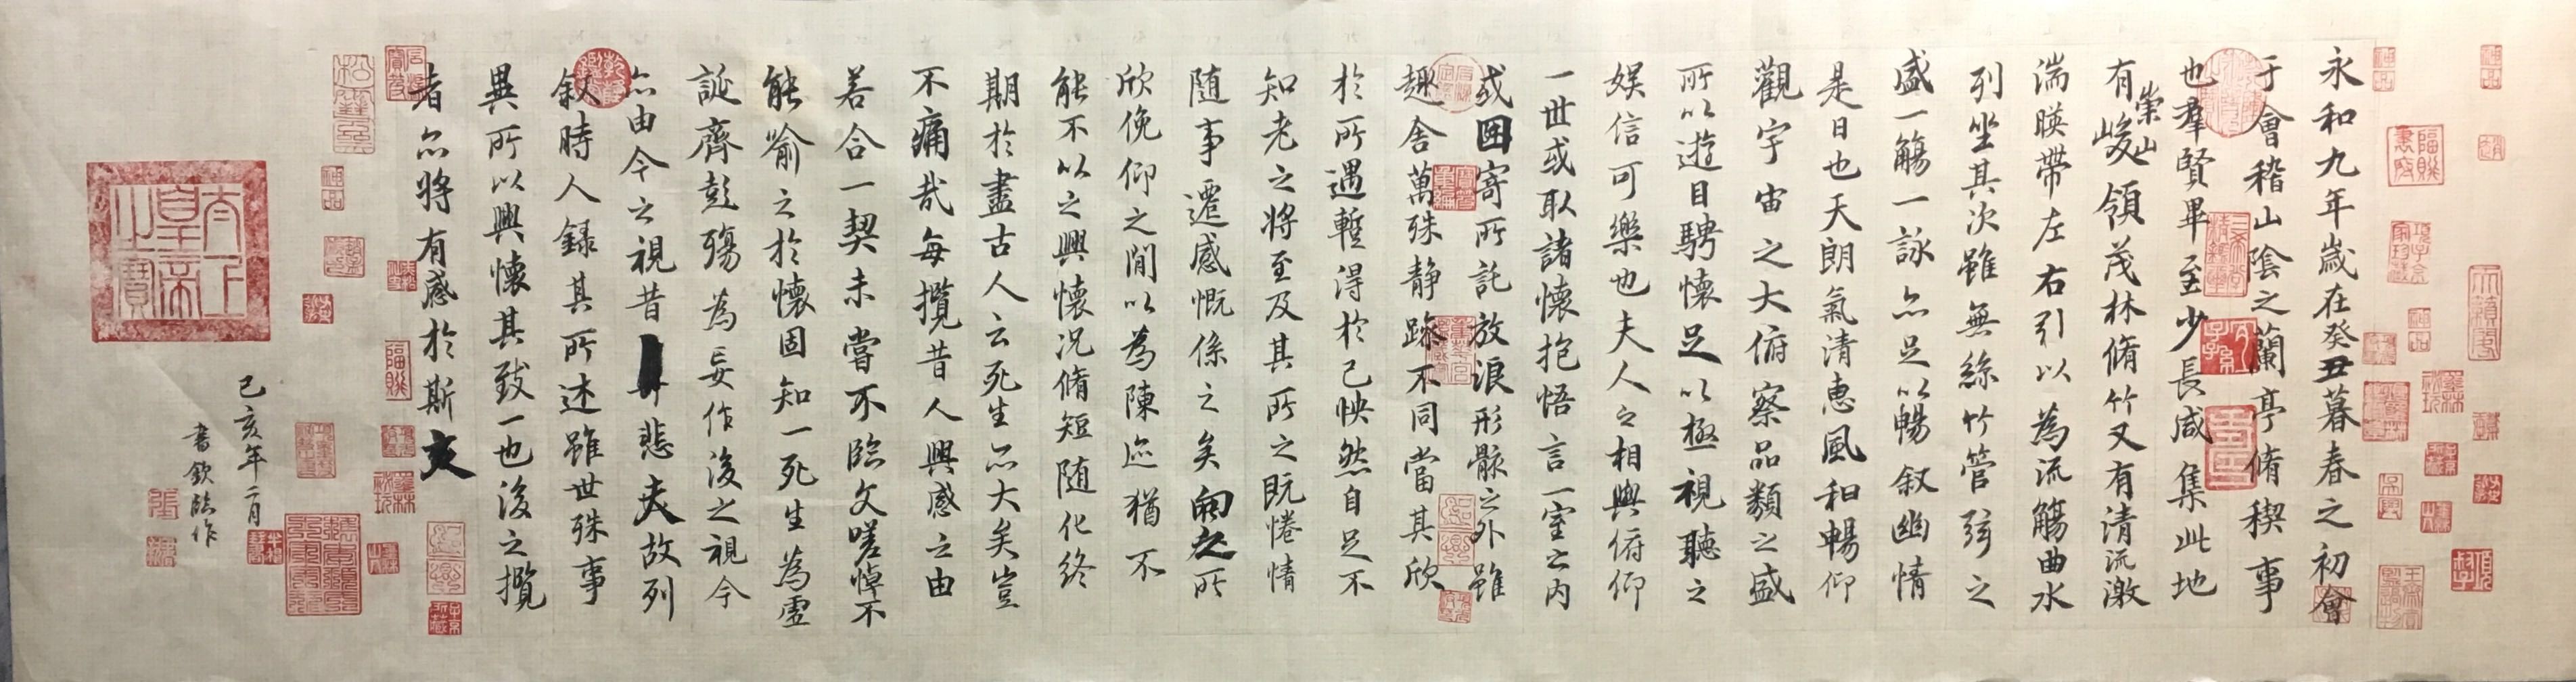 永和九年歲在癸丑暮春之初會
于會稽山陰之蘭亭脩稧事
也羣賢畢至少長咸集此地
有崇山峻領茂林脩竹又有清流激
湍暎帶左右引以為流觴曲水
列坐其次雖無絲竹管弦之
盛一觴一詠亦足以暢叙幽情
是日也天朗氣清惠風和暢仰
觀宇宙之大俯察品類之盛
所以遊目騁懷足以極視聽之
娛信可樂也夫人之相與俯仰
一世或取諸懷抱悟言一室之內
或因寄所託放浪形骸之外雖
趣舍萬殊静躁不同當其欣
於所遇蹔得於己怏然自足不
知老之將至及其所之既惓情
随事遷感慨係之矣向之所
欣俛仰之閒以為陳迹猶不
能不以之興懷况脩短随化終
期於盡古人云死生亦大矣豈
不痛哉每攬昔人興感之由
若合一契未嘗不臨文嗟悼不
能喻之於懷固知一死生為虛
誕齊彭殤為妄作後之視今
亦由今之視昔悲夫故列
叙時人録其所述雖世殊事
異所以興懷其致一也後之攬
者亦將有感於斯文
己亥年二月
書欽臨作
太上皇帝之寶